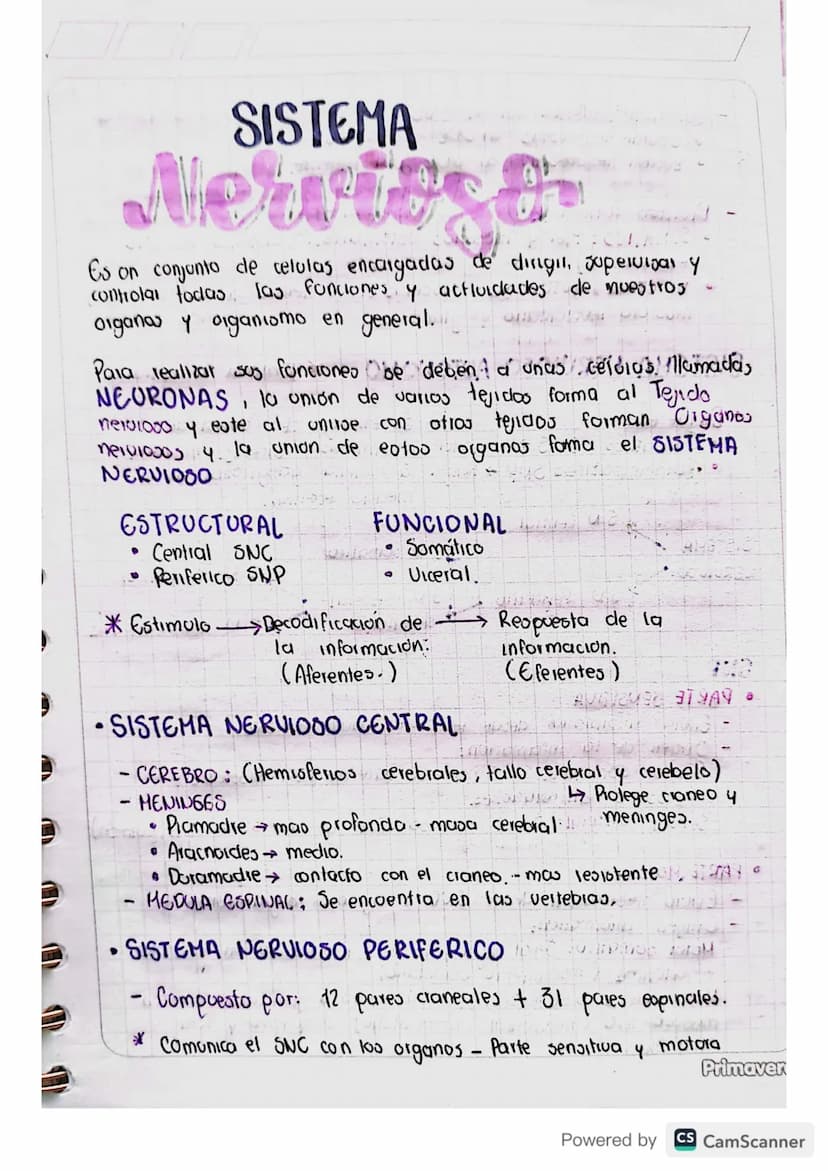 SISTEMA
Nervioso
Es un conjunto de celulas encargadas de dirigir, supervisar y
controlar todas las funciones y actividades de nuestros
organos y organismo en general.
Para realizar sus funciones se deben a unas células llamadas
NEURONAS, la unión de varios tejidos forma al Tejido
nervioso y este al unirse con otros tejidos forman Organos
nerviosos y la union de estos organos forma el SISTEMA
NERVIOSO
ESTRUCTURAL FUNCIONAL
• Central SNC • Somático
• Periferico SNP • Viceral.
* Estimulo → Decodificación de → Respuesta de la
la información: informacion.
(Aferentes.) (Eferentes)
• SISTEMA NERVIOSO CENTRAL
- CEREBRO: (Hemisferios cerebrales, tallo cerebral y cerebelo)
- MENINGES ↳ Protege craneo y
• Piamadre → mas profundo - masa cerebral. meninges.
• Aracnoides → medio.
• Duramadre → contacto con el craneo. - mas resistente
- MEDULA ESPINAL: Se encuentra en las vertebras.
• SISTEMA NERVIOSO PERIFERICO
- Compuesto por: 12 pares craneales + 31 pares espinales.
* Comunica el SNC con los organos - Parte sensitiva y motora
Primaver
Powered by CS CamScanner